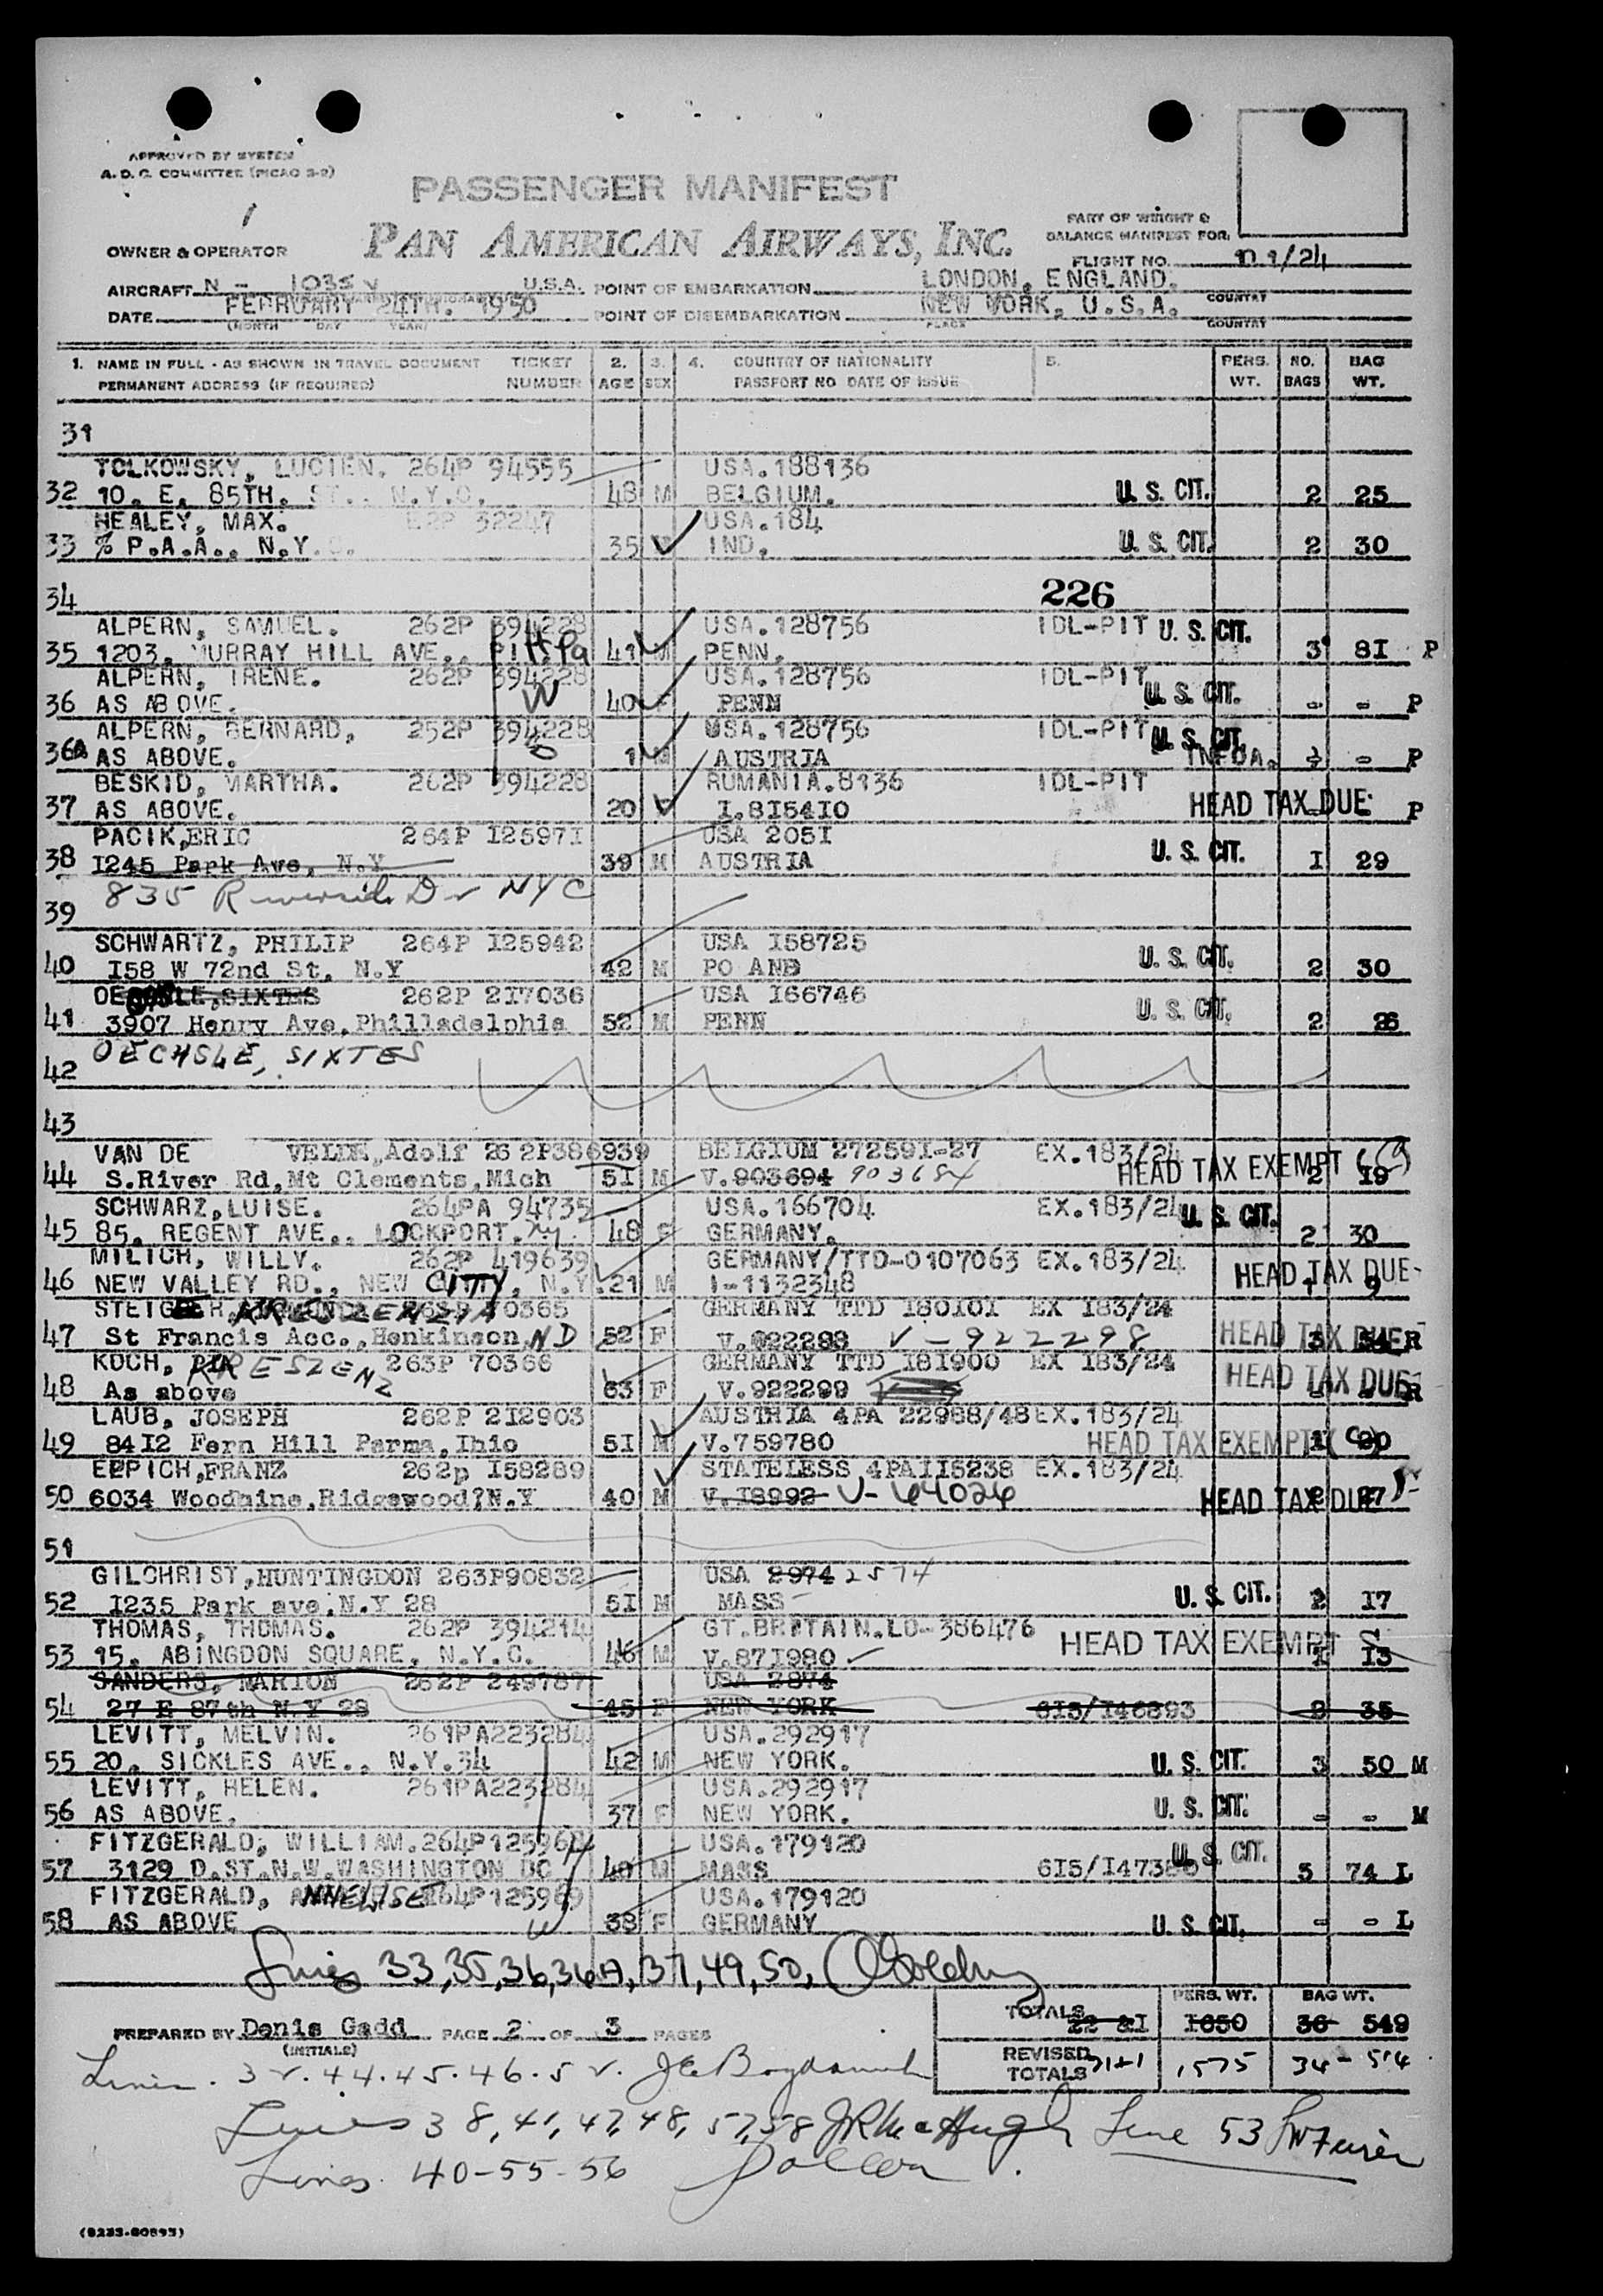 APPROVED BY SYSTEM
A. D. C. COMMITTEE (PICAO 3-2)
PASSENGER MANIFEST
PAN AMERICAN AIRWAYS, INC.
PART OF WEIGHT &
BALANCE MANIFEST FOR
OWNER & OPERATOR
FLIGHT NO.
AIRCRAFT N - 1035 V U.S.A. POINT OF EMBARKATION LONDON, ENGLAND. COUNTRY
DATE FEBRUARY 24TH. 1950 POINT OF DISEMBARKATION NEW YORK, U.S.A.
(MONTH DAY YEAR) PLACE COUNTRY
1. NAME IN FULL - AS SHOWN IN TRAVEL DOCUMENT TICKET 2. 3. 4. COUNTRY OF NATIONALITY 5. PERS. NO. BAG
PERMANENT ADDRESS (IF REQUIRED) NUMBER AGE SEX PASSPORT NO DATE OF ISSUE WT. BAGS WT.
31
TOLKOWSKY, LUCIEN. 264P 94555 USA.188136
32 10. E. 85TH. ST., N.Y.C. 48 M BELGIUM. U. S. CIT. 2 25
HEALEY, MAX. 32247 USA.184
33 % P.A.A., N.Y.C. 35 IND. U. S. CIT. 2 30
34 226
ALPERN, SAMUEL. 262P 394228 USA.128756 IDL-PIT U. S. CIT.
35 1203. MURRAY HILL AVE., Pitt Pa 41 M PENN. 3 81 P
ALPERN, IRENE. 262P 394228 USA.128756 IDL-PIT
36 AS ABOVE. W 40 F PENN U. S. CIT. - - P
ALPERN, BERNARD, 252P 394228 USA.128756 IDL-PIT U. S. CIT.
36A AS ABOVE. 1 M AUSTRIA INFOA. - P
BESKID, MARTHA. 262P 394228 RUMANIA.8136 IDL-PIT
37 AS ABOVE. 20 F I.815410 HEAD TAX DUE P
PACIK,ERIC 264P I25971 USA 205I
38 I245 Park Ave, N.Y 39 M AUSTRIA U. S. CIT. I 29
835 Riverside Dr NYC
39
SCHWARTZ, PHILIP 264P I25942 USA I58725
40 I58 W 72nd St, N.Y 42 M PO AND U. S. CIT. 2 30
OE LE,SIXTES 262P 2I7036 USA I66746
41 3907 Henry Ave,Philladelphia 52 M PENN U. S. CIT. 2 26
OECHSLE, SIXTES
42
43
VAN DE VELDE,Adolf 26 2P386939 BELGIUM 27259I-27 EX.183/24
44 S.River Rd,Mt Clements,Mich 5I M V.903694 903684 HEAD TAX EXEMPT 2 I9
SCHWARZ,LUISE. 264PA 94735 USA.166704 EX.183/24
45 85. REGENT AVE., LOCKPORT. NY. 48 F GERMANY. U. S. CIT. 2 30
MILICH, WILLY. 262P 419639 GERMANY/TTD-0107063 EX.183/24
46 NEW VALLEY RD., NEW CITY, N.Y. 21 M I-1132348 HEAD TAX DUE 1 9
70365 GERMANY TTD I80I0I EX I83/24
47 St Francis Acc.,Hankinson ND 52 F V.922288 V-922298 HEAD TAX DUE 3 54 R
KOCH, KRESZENZ 263P 70366 GERMANY TTD I8I900 EX I83/24
48 As above 63 F V.922299 HEAD TAX DUE - R
LAUB, JOSEPH 262P 2I2903 AUSTRIA 4PA 22988/48 EX.183/24
49 84I2 Fern Hill Parma,Ihio 5I M V.759780 HEAD TAX EXEMPT 1 20
EPPICH,FRANZ 262p I58289 STATELESS 4PAII5238 EX.183/24
50 6034 Woodbine,Ridgewood?N.Y 40 M V.I8992 V-64026 HEAD TAX DUE 2 27
51
GILCHRIST,HUNTINGDON 263P90832 USA 2974 2574
52 I235 Park ave.N.Y 28 5I M MASS U. S. CIT. 2 I7
THOMAS, THOMAS. 262P 394214 GT.BRITAIN.LO-386476
53 15. ABINGDON SQUARE, N.Y.C. 46 M V.87I980 HEAD TAX EXEMPT 1 I3
SANDERS, MARION 262P 249787 USA 2874
54 27 E 87th N.Y 28 45 F NEW YORK 6I5/I46893 2 35
LEVITT, MELVIN. 261PA223284 USA.292917
55 20. SICKLES AVE., N.Y.34 42 M NEW YORK. U. S. CIT. 3 50 M
LEVITT, HELEN. 261PA223284 USA.292917
56 AS ABOVE. 37 F NEW YORK. U. S. CIT. - - M
FITZGERALD, WILLIAM. 264P USA.179120
57 3129 D.ST.N.W.WASHINGTON DC M MASS 6I5/I47380 U. S. CIT. 5 74 L
FITZGERALD, ANNELISE 264P125969 USA.179120
58 AS ABOVE W 38 F GERMANY U. S. CIT. - - L
Lines 33,35,36,36A,37,49,50,
TOTALS 22 &I PERS. WT. I650 BAG WT. 36 549
PREPARED BY Denis Gadd PAGE 2 OF 3 PAGES
(INITIALS)
REVISED TOTALS 21+1 1575 34 - 514
Lines. 32.44.45.46.52.
Lines 38,41,47,48,57,58 JR McHugh Line 53
Lines 40-55-56